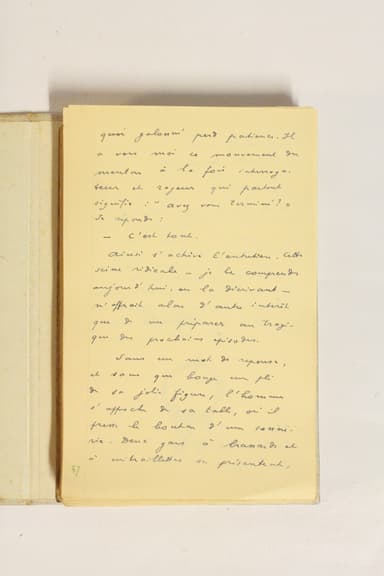 quoi galonné perd patience. Il
a vers moi ce mouvement du
menton à la fois interroga-
teur et rageur qui partout
signifie : " Avez vous terminé ? "
Je réponds :
— C'est tout.
Ainsi s'achève l'entretien. Cette
scène ridicule — je le comprends
aujourd'hui, en la décrivant —
n'offrait alors d'autre intérêt
que de me préparer au tragi-
que des prochains épisodes.
Sans un mot de réponse,
et sans que bouge un pli
de sa jolie figure, l'homme
s'approche de sa table, où il
presse le bouton d'une sonne-
rie. Deux gars à brassards et
à mitraillettes se présentent,
57